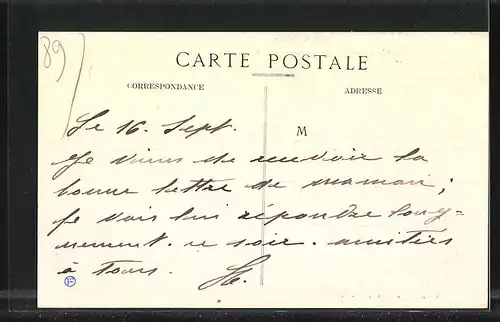 89
CARTE POSTALE
CORRESPONDANCE
ADRESSE
M
Le 16. Sept.
Je viens de recevoir la
bonne lettre de maman ;
je vais lui répondre long=
uement ce soir. amitiés
à tous.